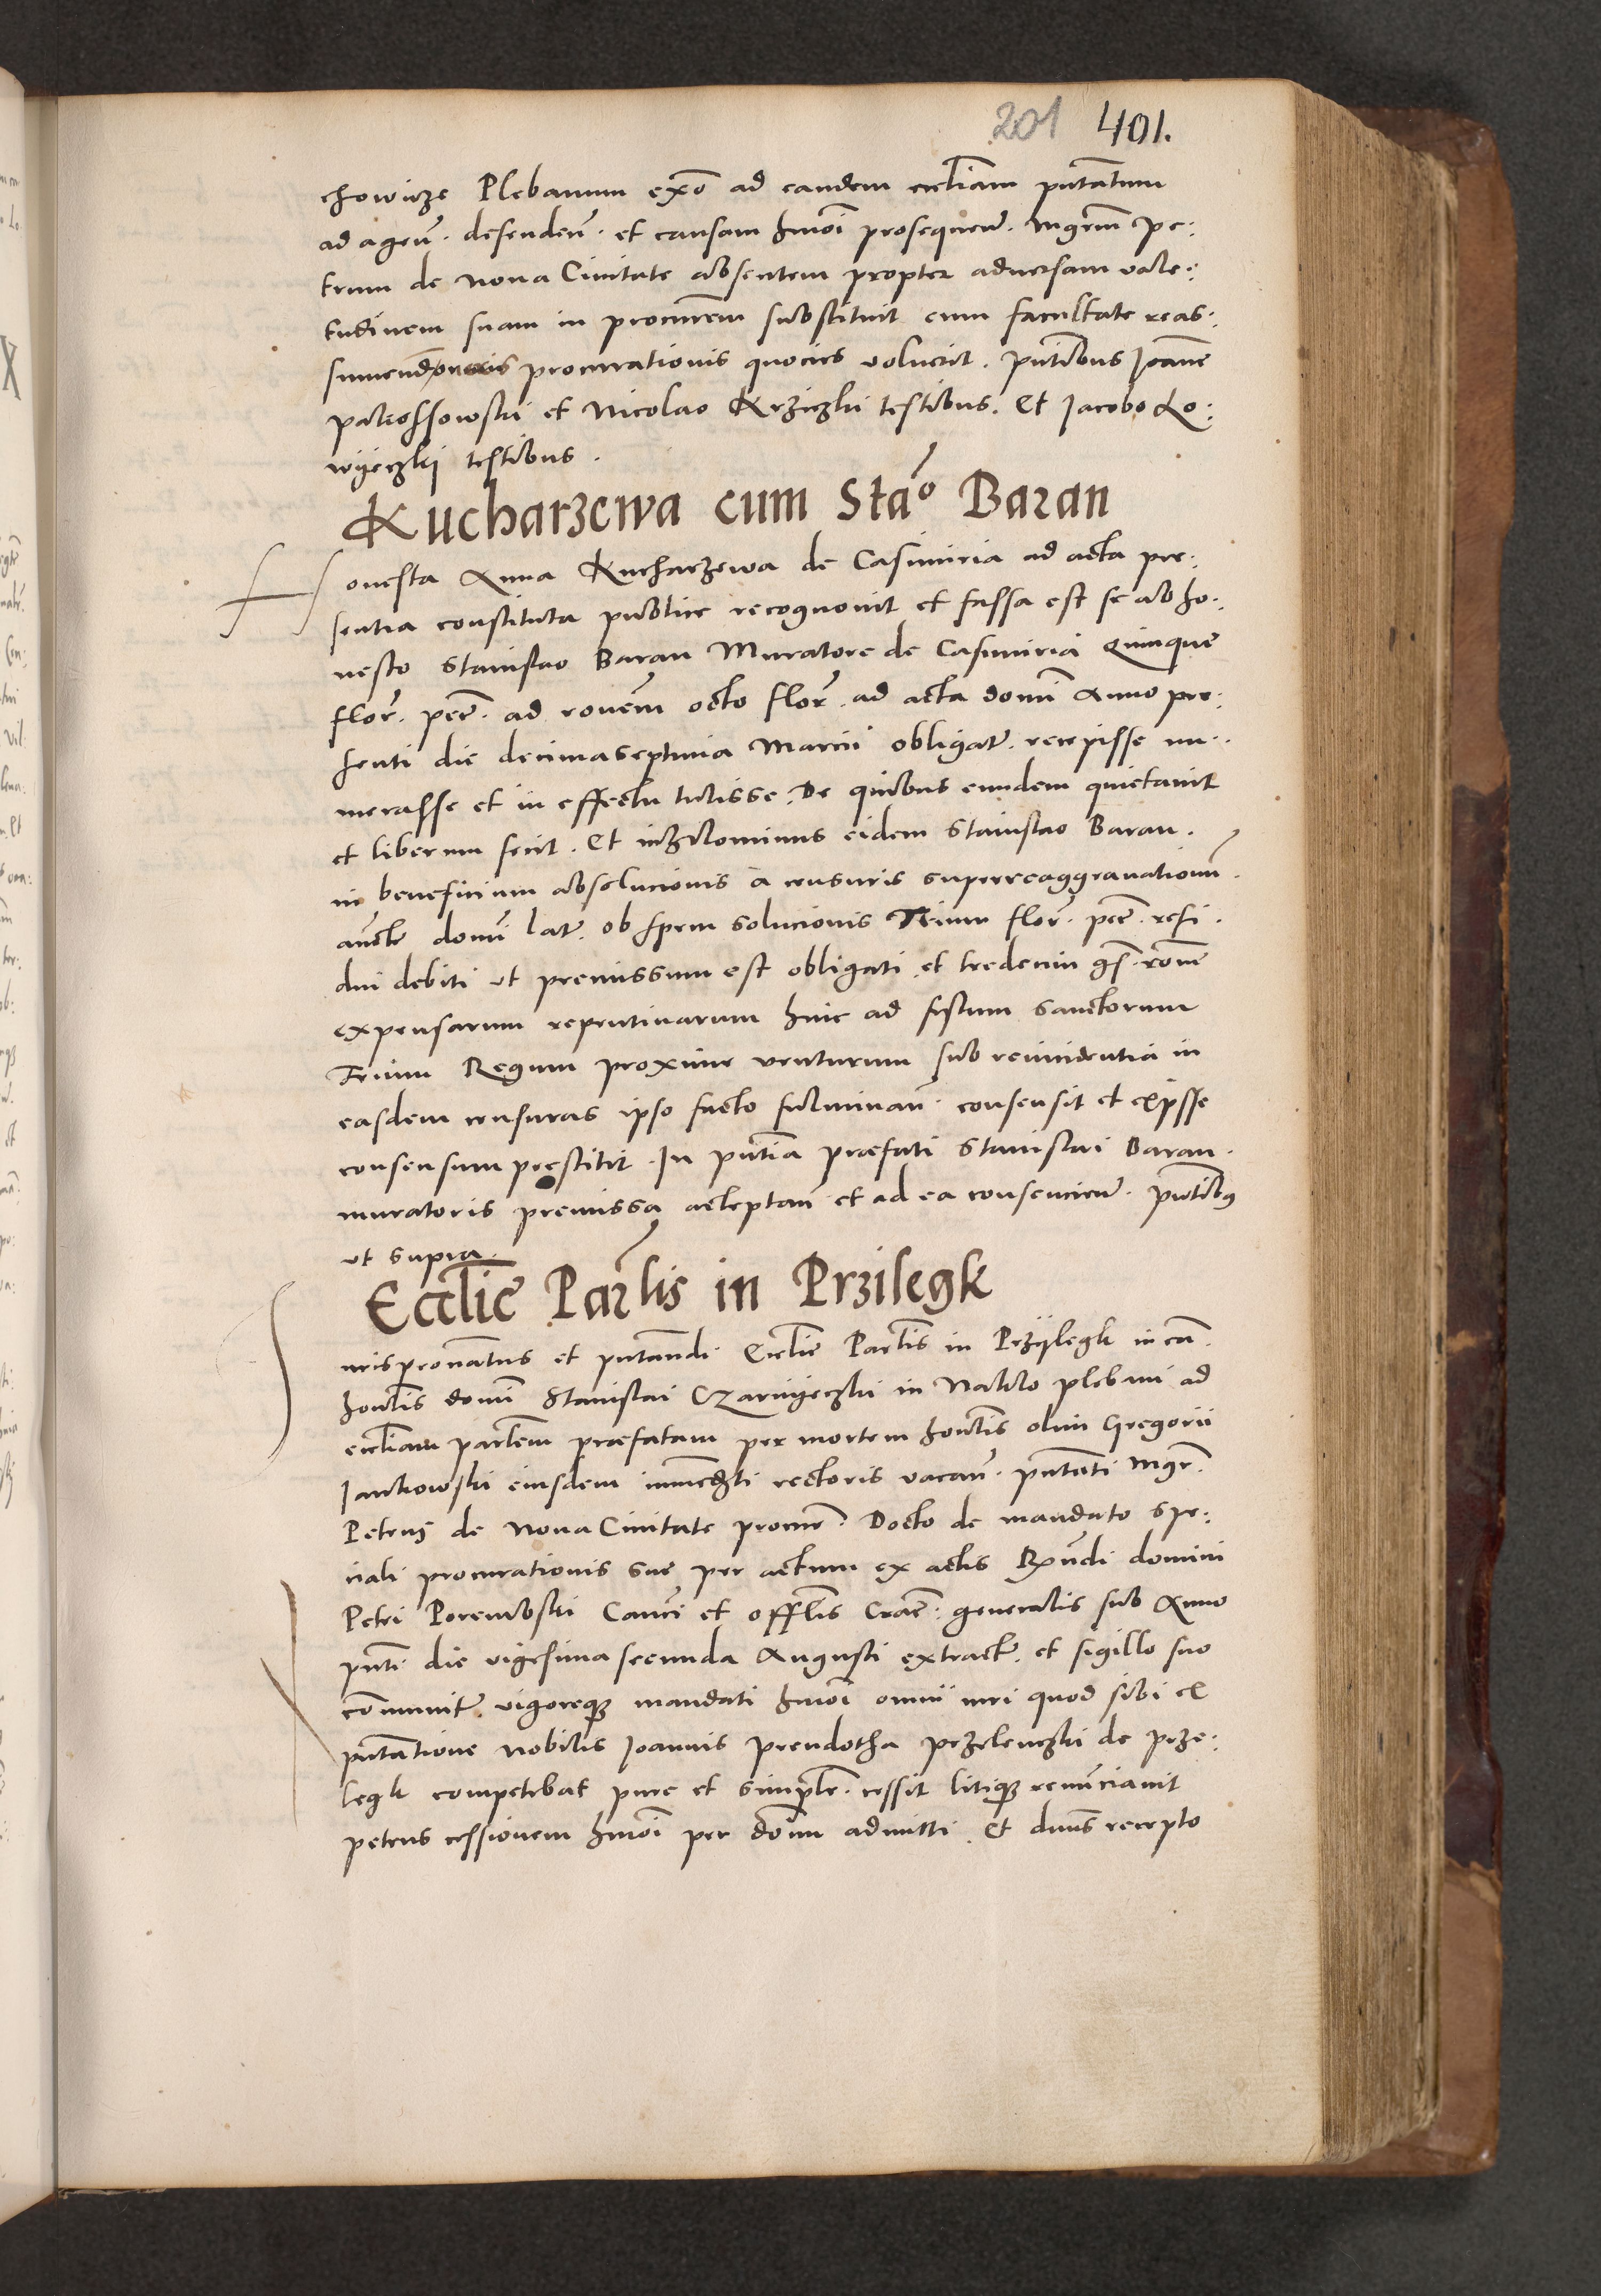 201 401.
chowicze Plebanum exo ad eandem eccliam pntatum
ad agen. defenden. et causam hmoi prosequen. Mgrm Pe:
trum de Nova Civitate absentem propter adversam vale:
tudinem suam in procurem substituit cum facultate reas:
sumend oneris procurationis quocies voluerit. pntibus Joanne
et Nicolao Krziczki testibus. Et Jacobo Lo:
wyeczkj testibus.
Kucharzewa cum Stao Baran
Honesta Anna Kucharzewa de Casimiria ad acta pre:
sentia constituta publice recognovit et fassa est se ab ho:
nesto Stanislao Baran Muratore de Casimiria Quinque
flor. pec. ad ronem octo flor. ad acta domi Anno pre:
senti die decimaseptima Marcii obligat. recepisse nu:
merasse et in effectu tulisse. De quibus eundem quietavit
et liberum fecit. Et nihilominus eidem Stanislao Baran.
in beneficium absolucionis a censuris superreaggravationum.
aucte domi lat. ob spem solucionis Trium flor. pec. resi.
dui debiti ut premissum est obligati et tredecim gs. rone
expensarum repentinarum hinc ad festum sanctorum
Trium Regum proxime venturum sub reincidentia in
easdem censuras ipso facto fulminan. consensit et expsse
consensum prestitit. In pntia præfati Stanislai Baran.
muratoris premissa acceptan et ad ea consencien. pntibus
ut supra.
Ecclie Parlis in Przilegk
Juris pronatus et pntandi Ecclie Parlis in Przylegk in ca.
honlis domi Stanislai Czarnyeczki in Naklo plebani ad
eccliam parlem præfatam per mortem honlis olim Gregorii
Jankowski eiusdem immedti rectoris vacan. pntati Mgr.
Petrus de Nova Civitate procur. Docto de mandato spe:
ciali procurationis sue per actum ex actis Rxndi domini
Petri Porembski Canci et offlis Crac. generalis sub Anno
pnti die vigesima secunda Augusti extract. et sigillo suo
communit. vigoreque mandati hmoi omni iuri quod sibi ex
pntatione nobilis Joannis Prendotha Przelenczki de Prze:
legk competebat pure et simplr. cessit litique renunciavit
petens cessionem hmoi per domi admitti. Et dnus recepto